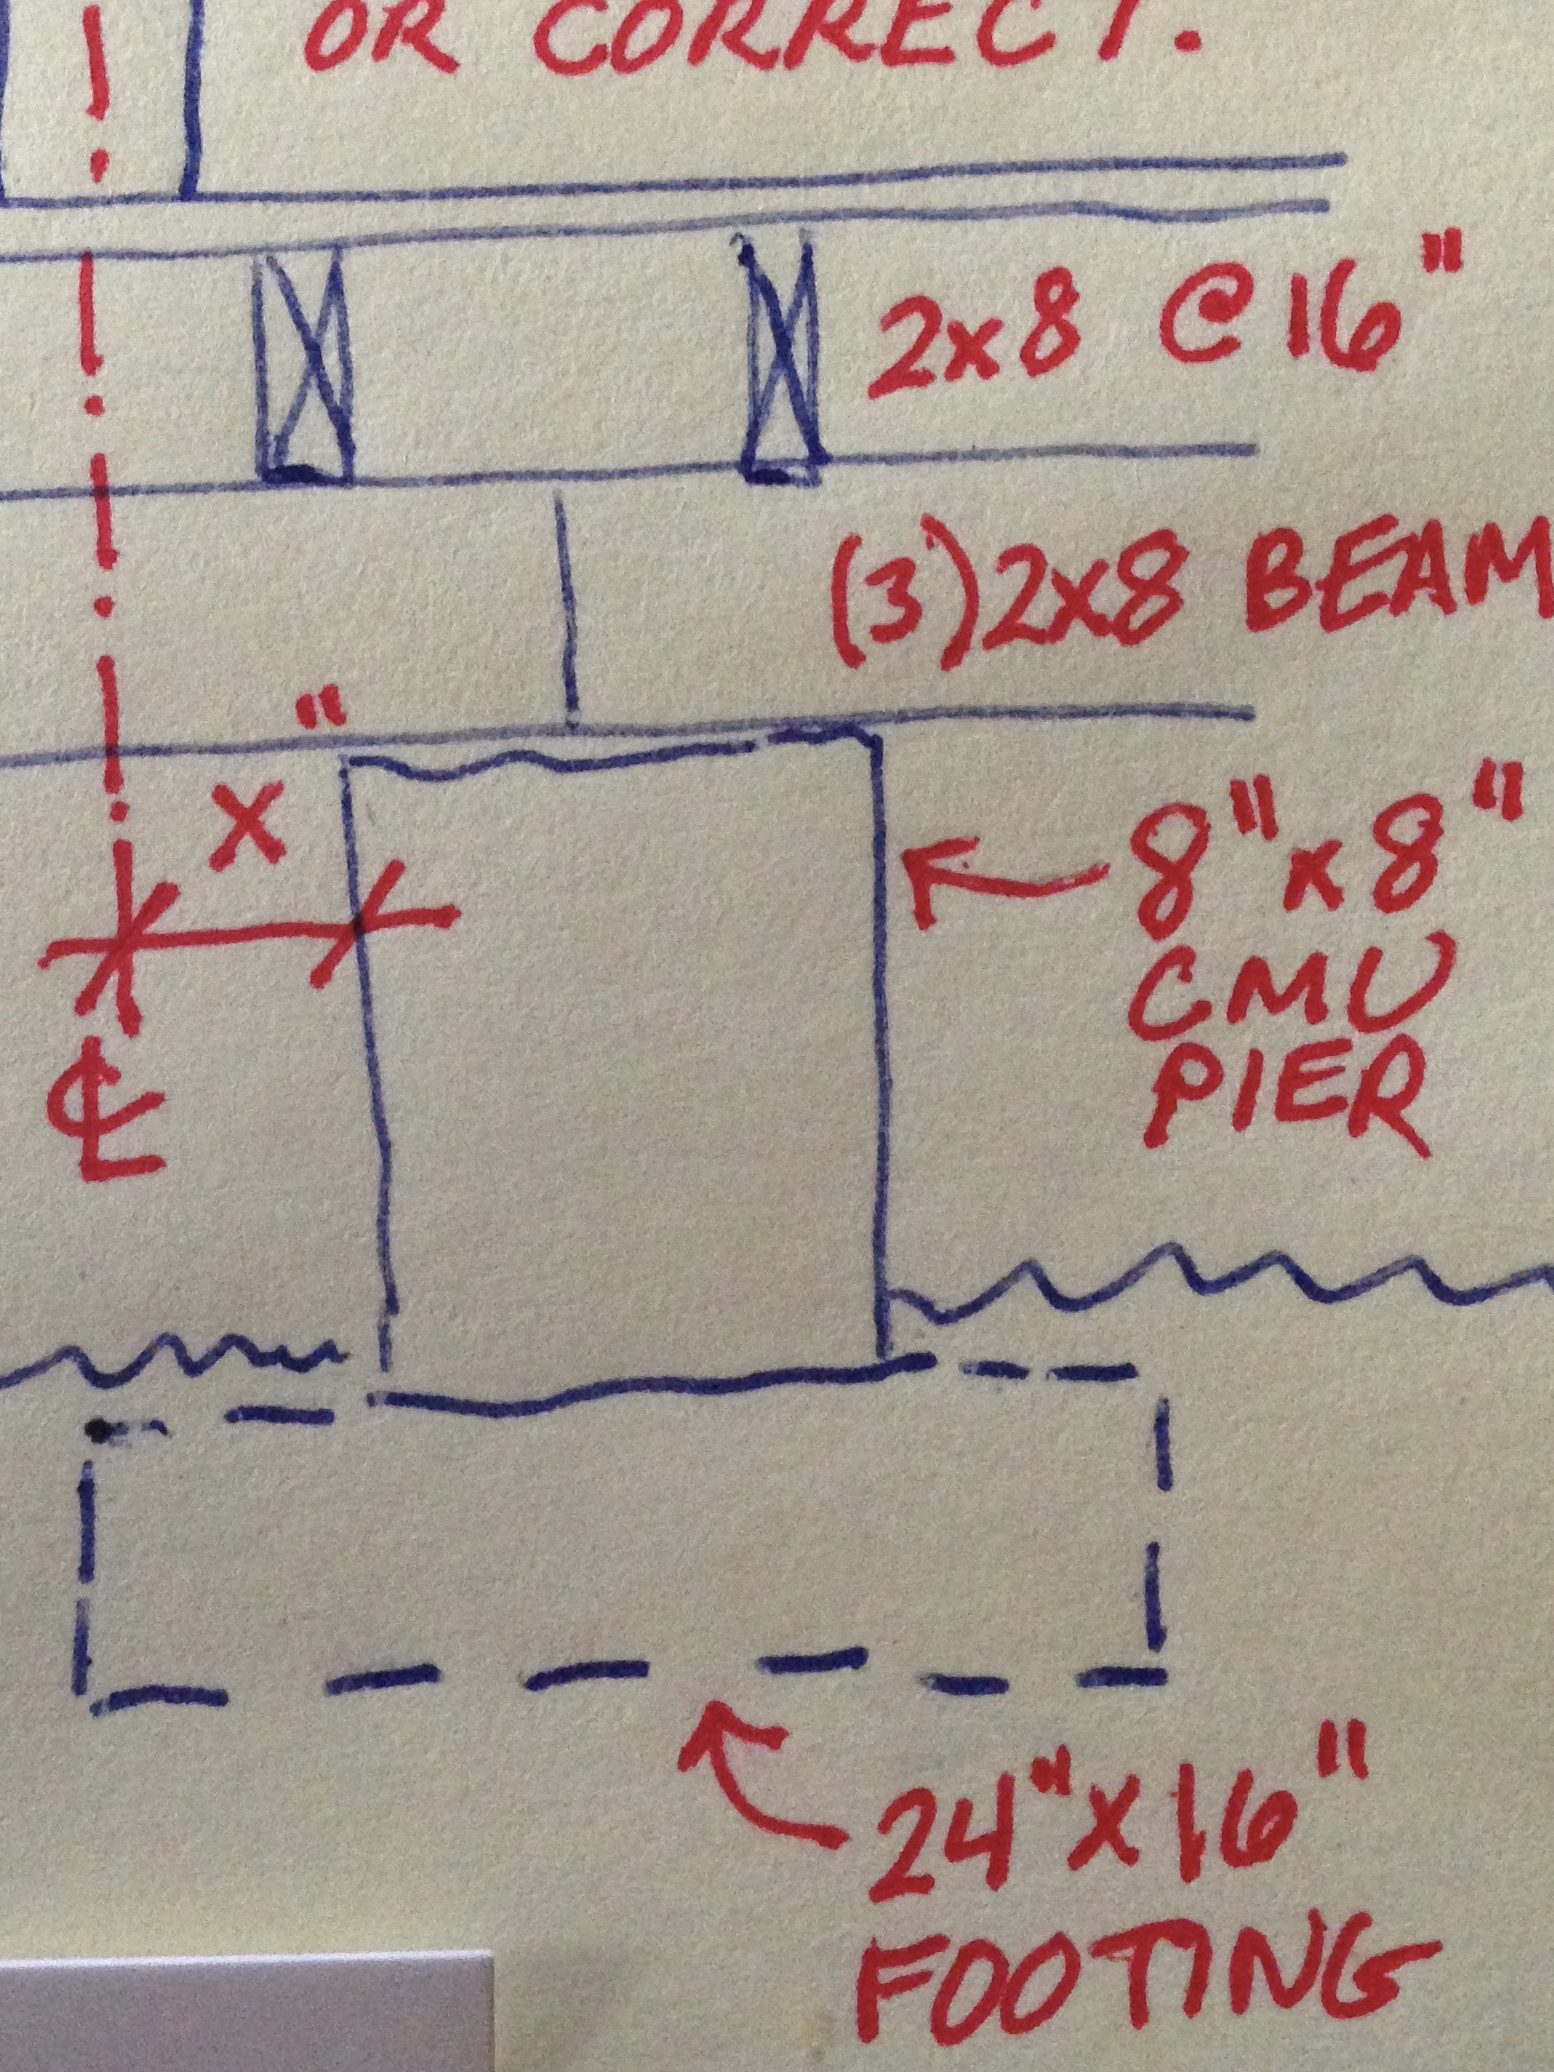 OR CORRECT.
2x8 @ 16"
(3) 2x8 BEAM
x"
8" x 8"
CMU
PIER
℄
24" x 16"
FOOTING